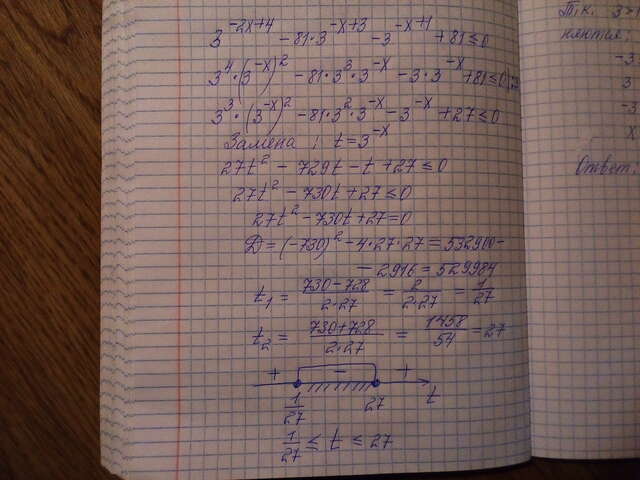 3^{-2x+4} - 81·3^{-x+3} - 3^{-x+1} + 81 ≤ 0
3^4·(3^{-x})^2 - 81·3^3·3^{-x} - 3·3^{-x} + 81 ≤ 0 |:3
3^3·(3^{-x})^2 - 81·3^2·3^{-x} - 3^{-x} + 27 ≤ 0
Замена: t = 3^{-x}
27t^2 - 729t - t + 27 ≤ 0
27t^2 - 730t + 27 ≤ 0
27t^2 - 730t + 27 = 0
D = (-730)^2 - 4·27·27 = 532900 -
- 2916 = 529984
t_1 = (730-728)/(2·27) = 2/(2·27) = 1/27
t_2 = (730+728)/(2·27) = 1458/54 = 27
+ - +
1/27 27 t
1/27 ≤ t ≤ 27
Т.к. 3 >
-3
3
-3
x
Ответ: